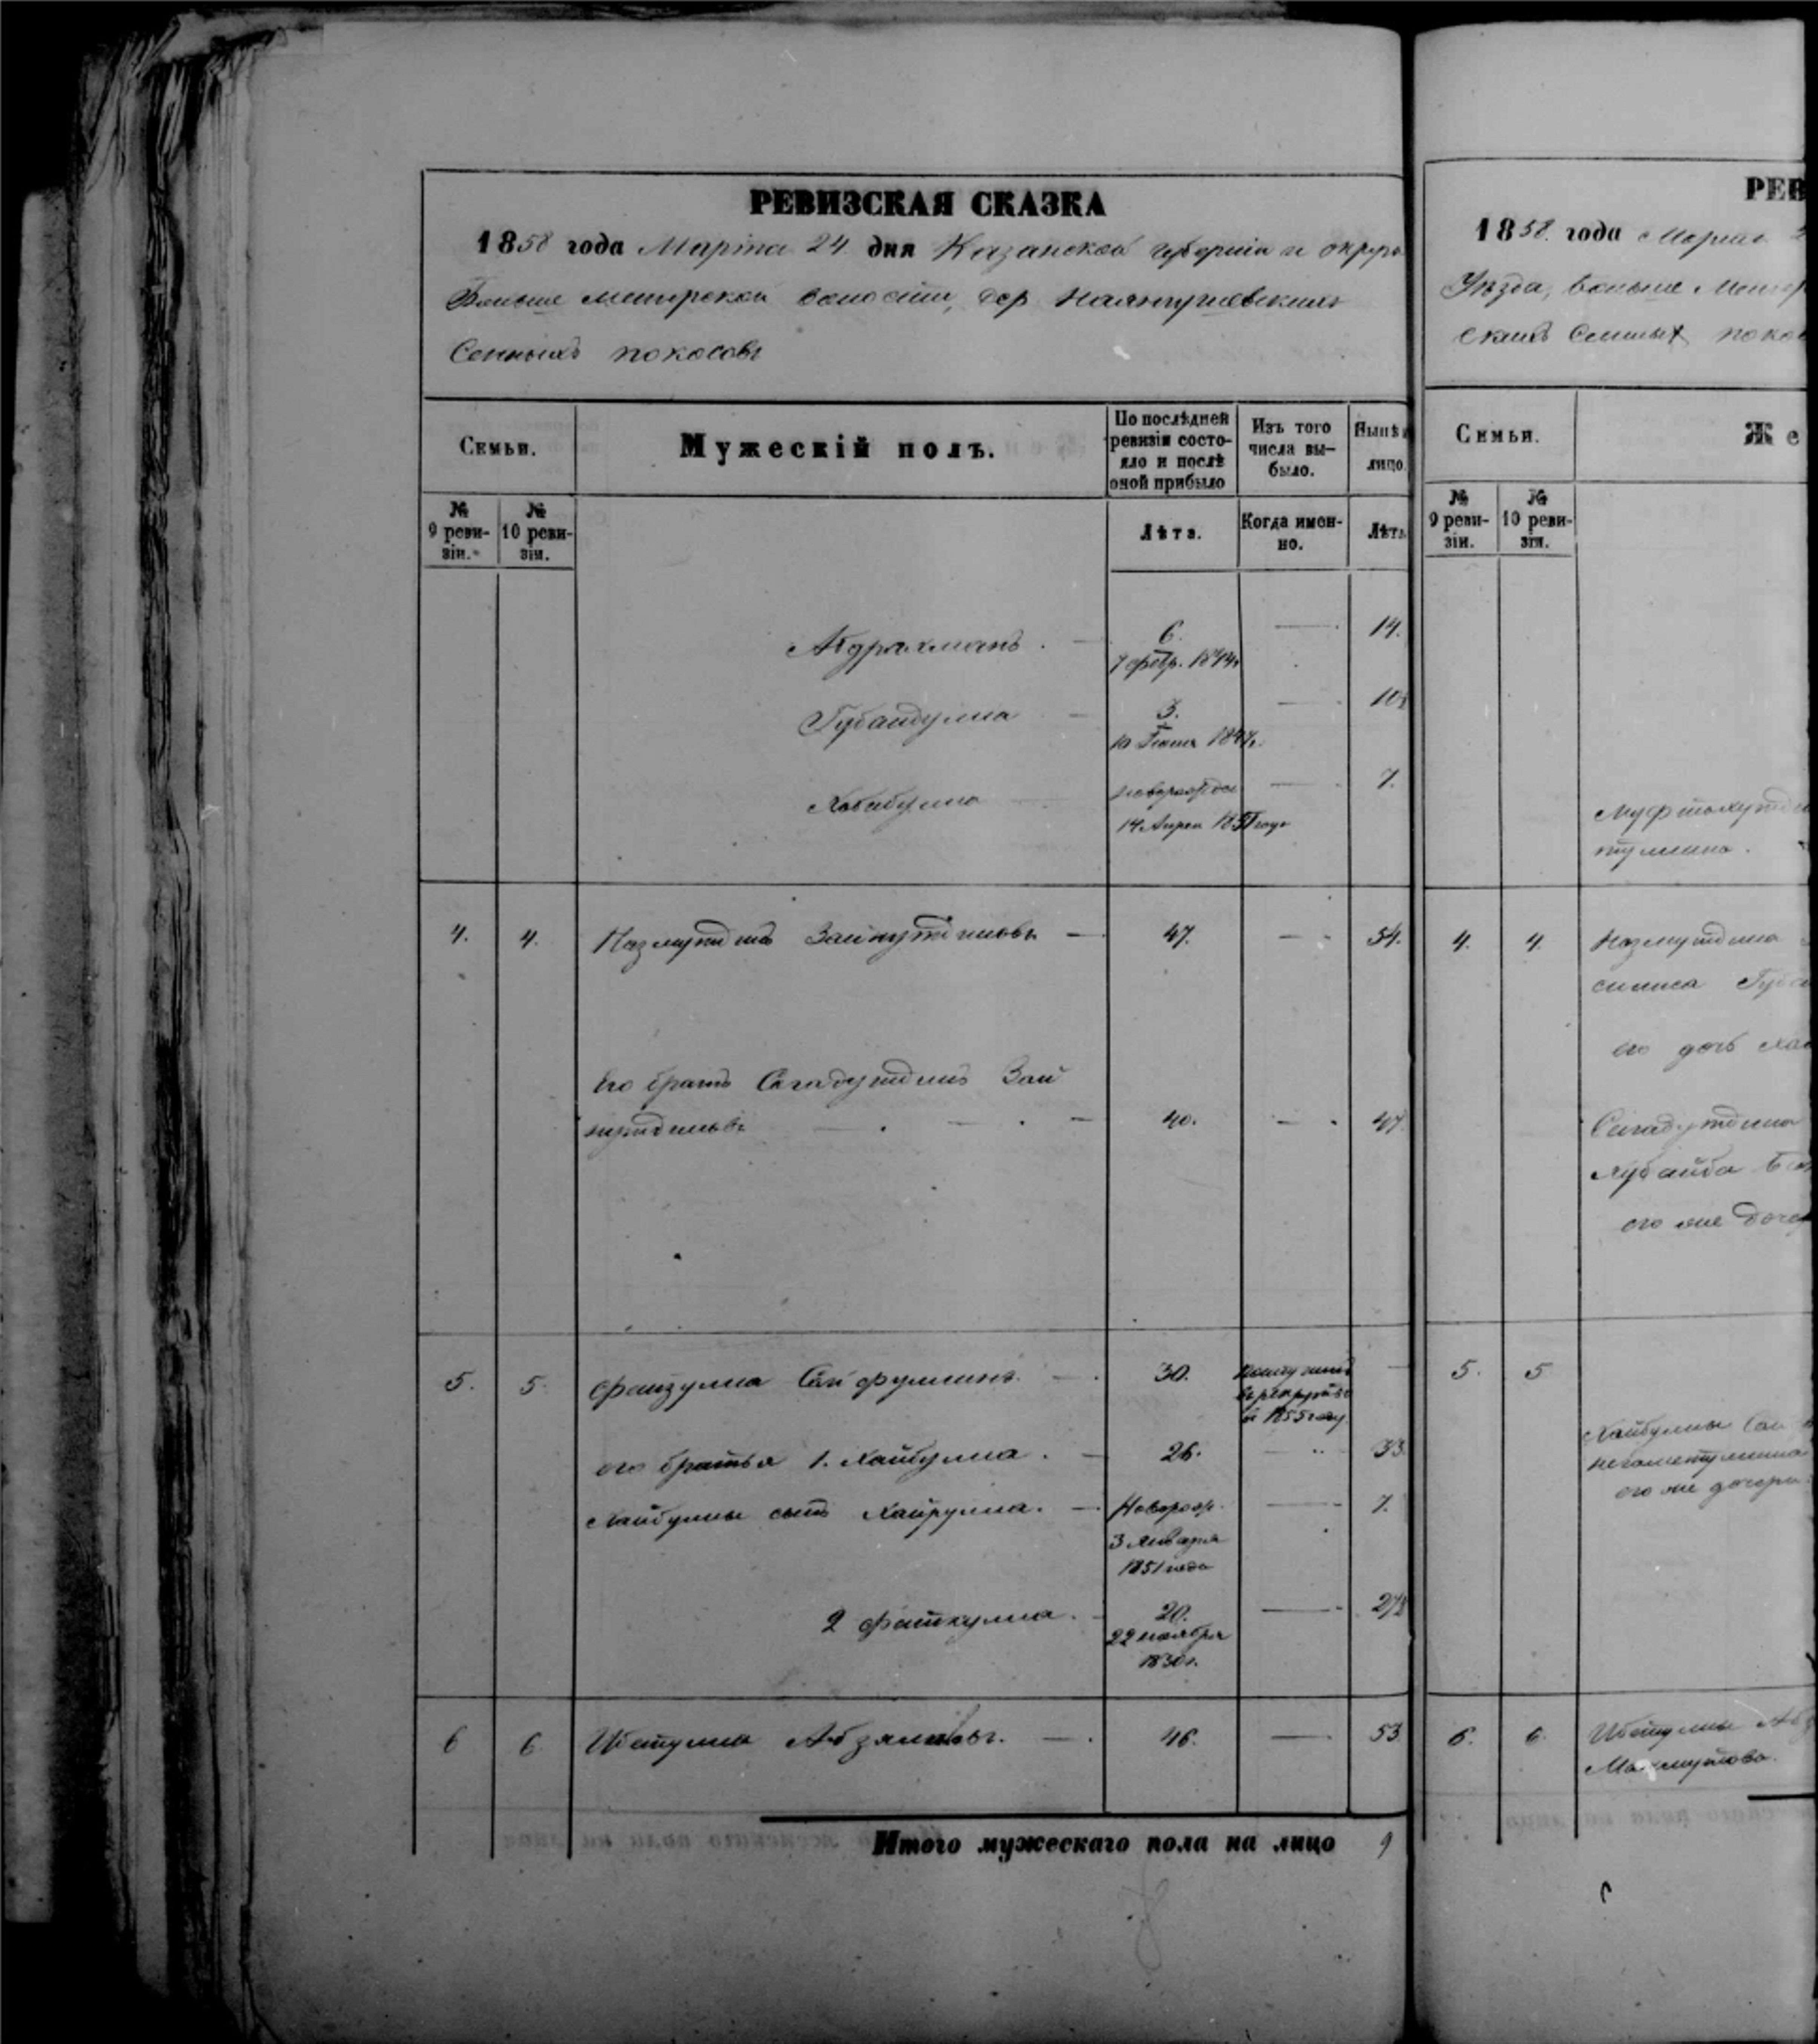 РЕВИЗСКАЯ СКАЗКА
1858 года Марта 24 дня Казанской губернiи и округа
Больше Менгерской волости, дер.
Сенныхъ покосовъ
Семьи.
Мужескiй полъ.
По послѣдней ревизiи состояло и послѣ оной прибыло
Изъ того числа выбыло.
Нынѣ
лицо.
№ 9 ревизiи.
№ 10 ревизiи.
Лѣта.
Когда именно.
Лѣта
Абдрахманъ. 6. 14.
7 февр. 1844
Губайдулла 3. 10½
10 1847г.
Хабибулла новорожден 7.
14 Апреля 1851 году
4. 4. Назмутдинъ Зайнутдиновъ 47. 54.
Его братъ Сагадутдинъ Зай
нутдиновъ 40. 47.
5. 5. Файзулла Сайфуллинъ. 30. Поступилъ
въ рекруты
въ 1855 году
его братья 1. Хайбулла. 26. 33.
Хайбуллы сынъ Хайрулла. Новорож. 7.
3 Января
1851 года
2 Фаткулла. 20. 27½
22 ноября
1830г.
6 6. Ибетулла Абзялиловъ. 46. 53.
Итого мужескаго пола на лицо 9
РЕВ
1858. года Марта 2
Уѣзда, Больше Менгер
скихъ Сенныхъ покос
Семьи.
Же
№ 9 ревизiи.
№ 10 ревизiи.
туллина.
4. 4. Назмутдина
его дочь
Сагадутдина
Хубайба
его же дочь
5. 5
Хайбуллы Сай
его же дочери
6. 6. Ибетуллы Абз
Махмутова.